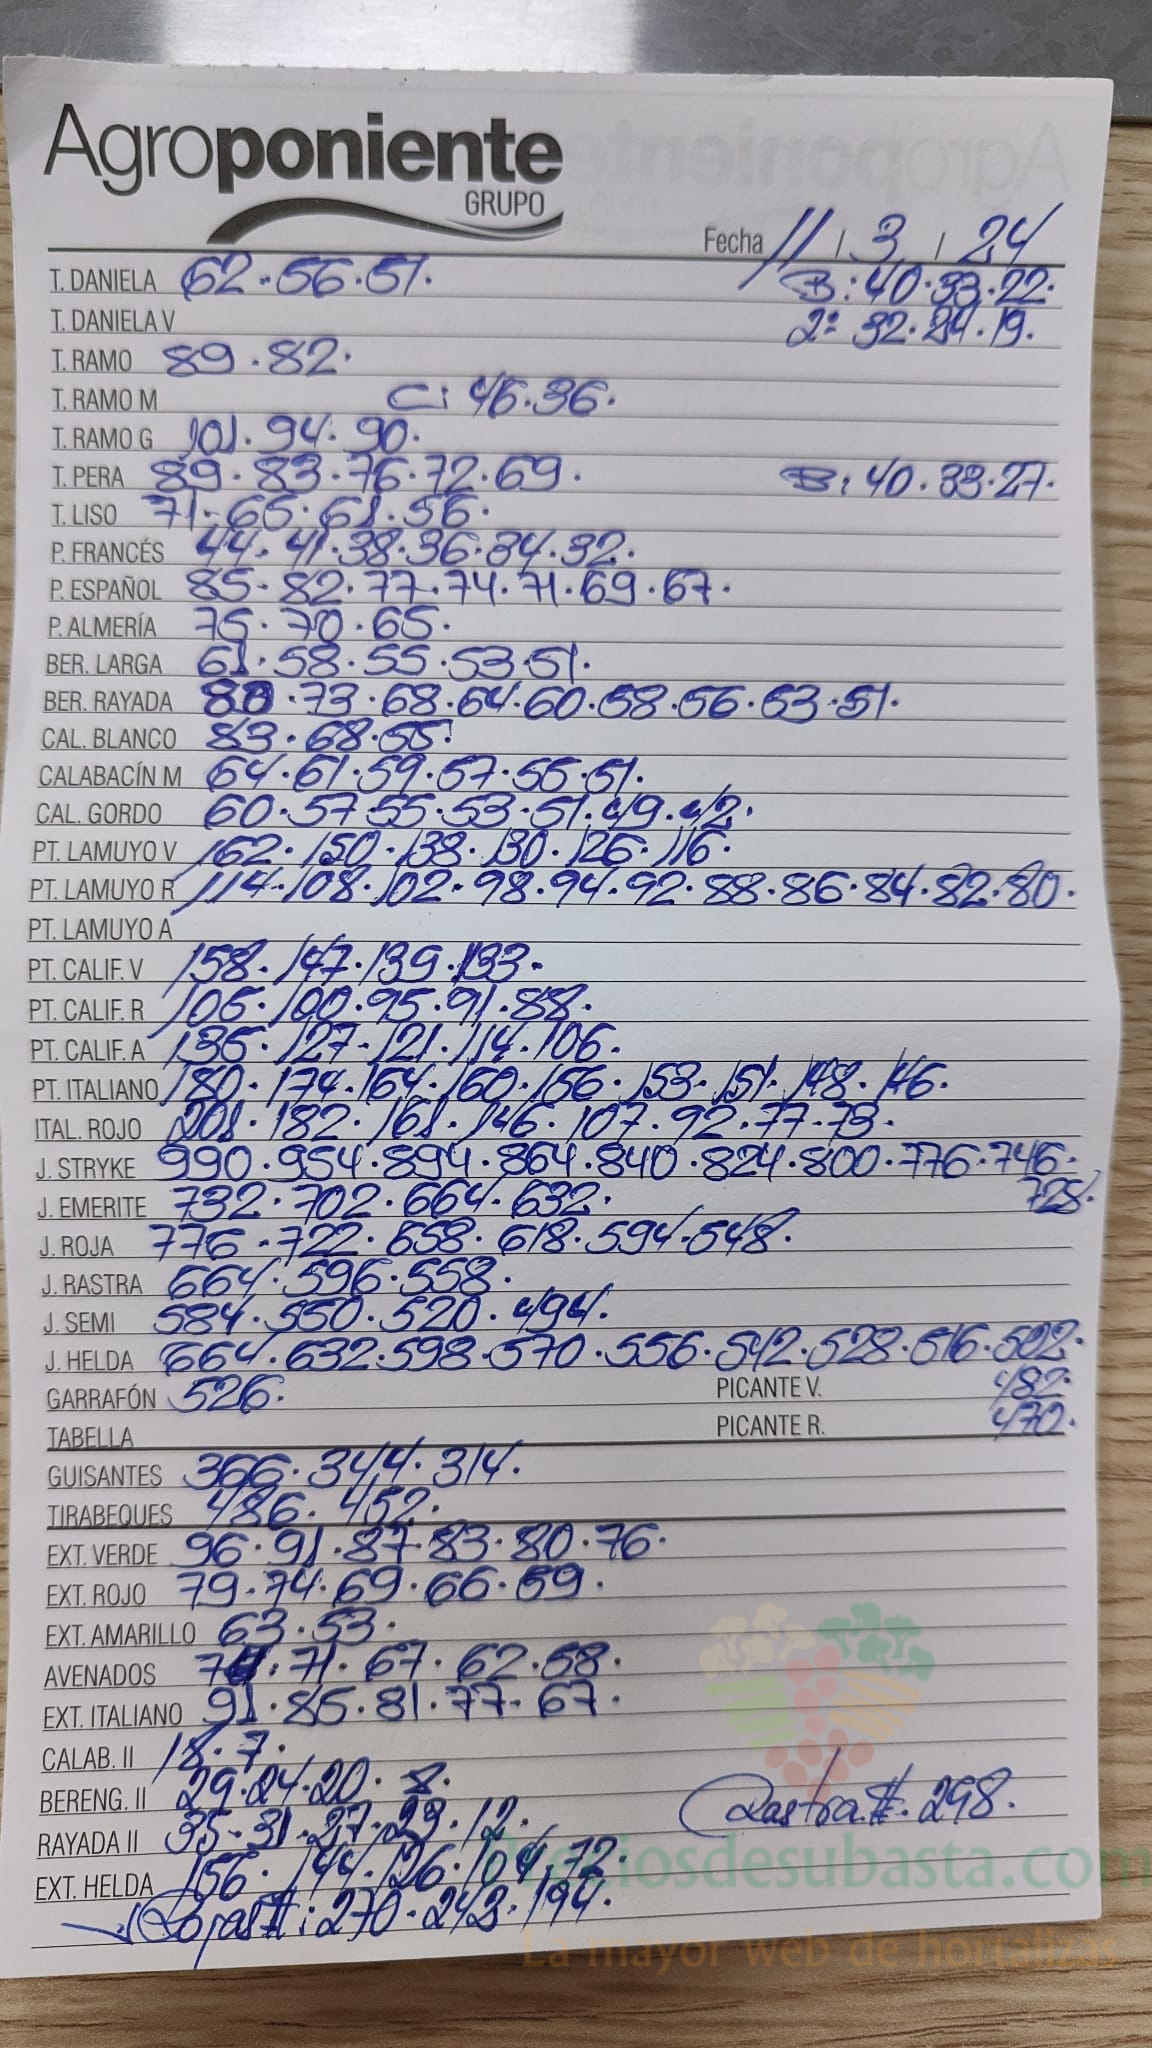 Agroponiente
GRUPO
Fecha 11 / 3 / 24
T. DANIELA 62 . 56 . 51. B: 40 . 33 . 22.
T. DANIELA V 2ª 32 . 24 . 19.
T. RAMO 89 . 82.
T. RAMO M C: 46 . 36.
T. RAMO G 101 . 94 . 90.
T. PERA 89 . 83 . 76 . 72 . 69. B: 40 . 33 . 27.
T. LISO 71 - 65 . 61 . 56.
P. FRANCÉS 44 . 41 . 38 . 36 . 34 . 32.
P. ESPAÑOL 85 - 82 . 77 . 74 . 71 . 69 . 67.
P. ALMERÍA 75 . 70 . 65.
BER. LARGA 61 . 58 . 55 . 53 . 51.
BER. RAYADA 80 . 73 . 68 . 64 . 60 . 58 . 56 . 53 . 51.
CAL. BLANCO 83 . 68 . 55.
CALABACÍN M 64 . 61 . 59 . 57 . 55 . 51.
CAL. GORDO 60 . 57 . 55 . 53 . 51 . 49 . 42.
PT. LAMUYO V 162 . 150 . 138 . 130 . 126 . 116.
PT. LAMUYO R 114 . 108 . 102 . 98 . 94 . 92 . 88 . 86 . 84 . 82 . 80.
PT. LAMUYO A
PT. CALIF. V 158 . 147 . 139 . 133.
PT. CALIF. R 106 . 100 . 95 . 91 . 88.
PT. CALIF. A 135 . 127 - 121 . 114 . 106.
PT. ITALIANO 180 . 174 . 164 . 160 . 156 . 153 . 151 . 148 . 146.
ITAL. ROJO 201 . 182 . 161 . 146 . 107 . 92 . 77 . 73.
J. STRYKE 990 . 954 . 894 . 864 . 840 . 824 . 800 . 776 . 746.
J. EMERITE 732 . 702 . 664 . 632. 728.
J. ROJA 776 . 722 . 658 . 618 . 594 . 548.
J. RASTRA 664 . 596 . 558.
J. SEMI 584 . 550 . 520 . 494.
J. HELDA 664 . 632 . 598 . 570 . 556 . 542 . 528 . 516 . 502.
GARRAFÓN 526. PICANTE V. 482.
TABELLA PICANTE R. 470.
GUISANTES 366 . 344 . 314.
TIRABEQUES 486 . 452.
EXT. VERDE 96 . 91 . 87 . 83 . 80 . 76.
EXT. ROJO 79 . 74 . 69 . 66 . 59.
EXT. AMARILLO 63 . 53.
AVENADOS 71 . 67 . 62 . 58.
EXT. ITALIANO 91 . 85 . 81 . 77 - 67.
CALAB. II 18 . 7.
BERENG. II 29 . 24 . 20 . 8. Rastra II . 298.
RAYADA II 35 - 31 . 27 . 23 . 12.
EXT. HELDA 156 . 144 . 126 . 104 . 72.
Rojas II : 270 . 243 . 194.
Preciosdesubasta.com
La mayor web de hortalizas